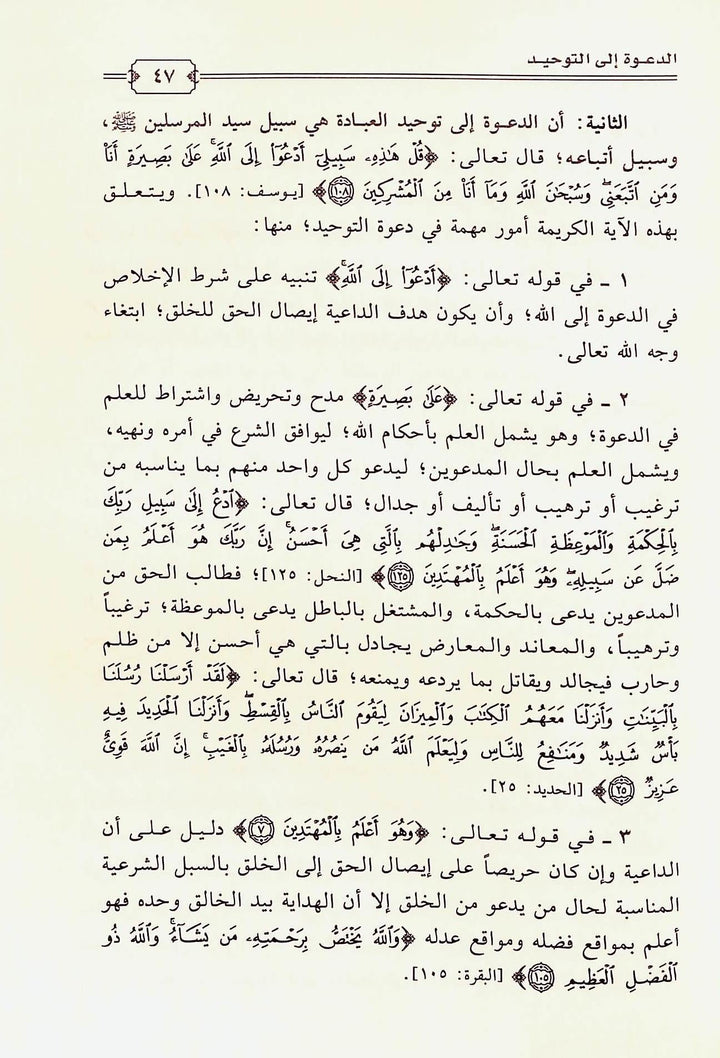 الدعوة إلى التوحيد
٤٧
الثانية: أن الدعوة إلى توحيد العبادة هي سبيل سيد المرسلين ﷺ،
وسبيل أتباعه؛ قال تعالى: ﴿قُلْ هَٰذِهِۦ سَبِيلِىٓ أَدْعُوٓا۟ إِلَى ٱللَّهِ ۚ عَلَىٰ بَصِيرَةٍ أَنَا۠
وَمَنِ ٱتَّبَعَنِى ۖ وَسُبْحَٰنَ ٱللَّهِ وَمَآ أَنَا۠ مِنَ ٱلْمُشْرِكِينَ ١٠٨﴾ [يوسف: ١٠٨]. ويتعلق
بهذه الآية الكريمة أمور مهمة في دعوة التوحيد؛ منها:
١ ـ في قوله تعالى: ﴿أَدْعُوٓا۟ إِلَى ٱللَّهِ ۚ﴾ تنبيه على شرط الإخلاص
في الدعوة إلى الله؛ وأن يكون هدف الداعية إيصال الحق للخلق؛ ابتغاء
وجه الله تعالى.
٢ ـ في قوله تعالى: ﴿عَلَىٰ بَصِيرَةٍ﴾ مدح وتحريض واشتراط للعلم
في الدعوة؛ وهو يشمل العلم بأحكام الله؛ ليوافق الشرع في أمره ونهيه،
ويشمل العلم بحال المدعوين؛ ليدعو كل واحد منهم بما يناسبه من
ترغيب أو ترهيب أو تأليف أو جدال؛ قال تعالى: ﴿ٱدْعُ إِلَىٰ سَبِيلِ رَبِّكَ
بِٱلْحِكْمَةِ وَٱلْمَوْعِظَةِ ٱلْحَسَنَةِ ۖ وَجَٰدِلْهُم بِٱلَّتِى هِىَ أَحْسَنُ ۚ إِنَّ رَبَّكَ هُوَ أَعْلَمُ بِمَن
ضَلَّ عَن سَبِيلِهِۦ ۖ وَهُوَ أَعْلَمُ بِٱلْمُهْتَدِينَ ١٢٥﴾ [النحل: ١٢٥]؛ فطالب الحق من
المدعوين يدعى بالحكمة، والمشتغل بالباطل يدعى بالموعظة؛ ترغيباً
وترهيباً، والمعاند والمعارض يجادل بالتي هي أحسن إلا من ظلم
وحارب فيجالد ويقاتل بما يردعه ويمنعه؛ قال تعالى: ﴿لَقَدْ أَرْسَلْنَا رُسُلَنَا
بِٱلْبَيِّنَٰتِ وَأَنزَلْنَا مَعَهُمُ ٱلْكِتَٰبَ وَٱلْمِيزَانَ لِيَقُومَ ٱلنَّاسُ بِٱلْقِسْطِ ۖ وَأَنزَلْنَا ٱلْحَدِيدَ فِيهِ
بَأْسٌ شَدِيدٌ وَمَنَٰفِعُ لِلنَّاسِ وَلِيَعْلَمَ ٱللَّهُ مَن يَنصُرُهُۥ وَرُسُلَهُۥ بِٱلْغَيْبِ ۚ إِنَّ ٱللَّهَ قَوِىٌّ
عَزِيزٌ ٢٥﴾ [الحديد: ٢٥].
٣ ـ في قوله تعالى: ﴿وَهُوَ أَعْلَمُ بِٱلْمُهْتَدِينَ ٧﴾ دليل على أن
الداعية وإن كان حريصاً على إيصال الحق إلى الخلق بالسبل الشرعية
المناسبة لحال من يدعو من الخلق إلا أن الهداية بيد الخالق وحده فهو
أعلم بمواقع فضله ومواقع عدله ﴿وَٱللَّهُ يَخْتَصُّ بِرَحْمَتِهِۦ مَن يَشَآءُ ۚ وَٱللَّهُ ذُو
ٱلْفَضْلِ ٱلْعَظِيمِ ١٠٥﴾ [البقرة: ١٠٥].